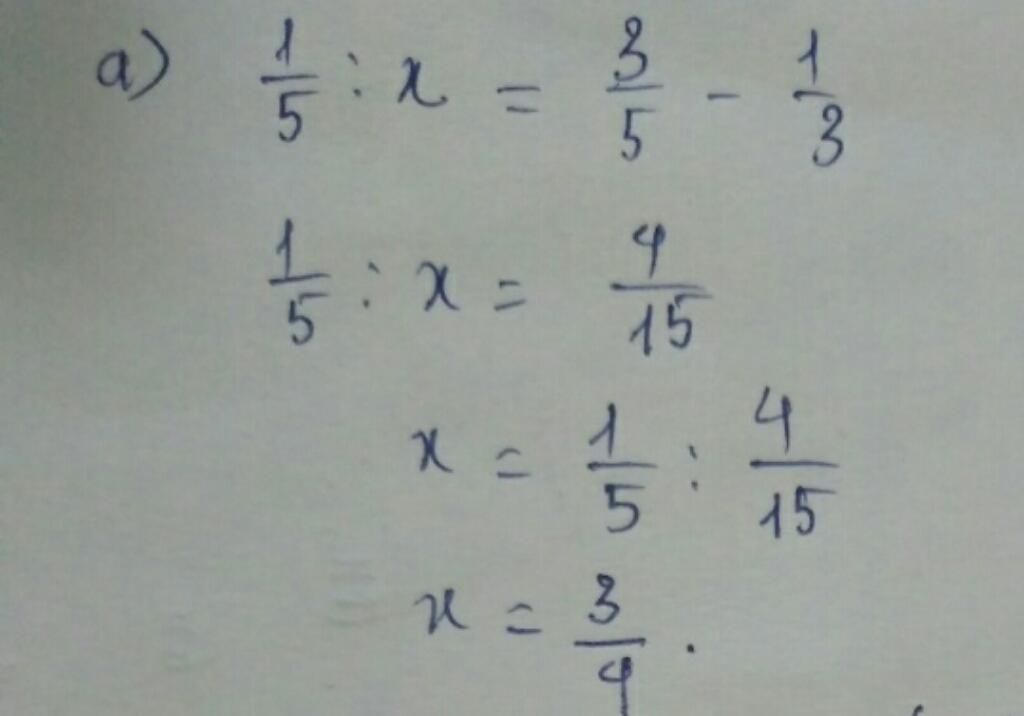 a) 1/5 : x = 3/5 - 1/3
1/5 : x = 4/15
x = 1/5 : 4/15
x = 3/4 .